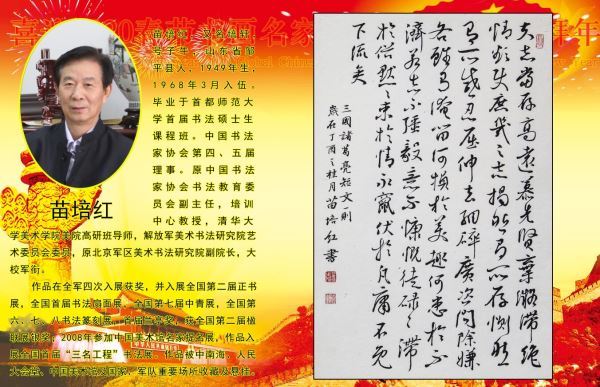 苗培红，又名培钰，
号子年，山东省邹
平县人，1949年生，
1968年3月入伍。
毕业于首都师范大
学首届书法硕士生
课程班。中国书法
家协会第四、五届
理事。原中国书法
家协会书法教育委
员会副主任，培训
中心教授，清华大
苗培红
学美术学院美院高研班导师，解放军美术书法研究院艺
术委员会委员，原北京军区美术书法研究院副院长，大
校军衔。
作品在全军四次入展获奖，并入展全国第二届正书
展，全国首届书法扇面展、全国第七届中青展，全国第
六、七、八书法篆刻展，首届兰亭奖，获全国第二届楹
联展银奖，2008年参加中国美术馆名家提名展，作品入
展全国首届“三名工程”书法展。作品被中南海、人民
大会堂、中国美术馆及国家，军队重要场所收藏及悬挂。
夫志当存高远慕先贤弃凝滞绝
情欲使庶几之志揭然有所存恻然
有所感忍屈伸去细碎广咨问除嫌
吝虽有淹留何损于美趣何患于不
济若志不强毅意不慷慨徒碌碌滞
于俗默默束于情永窜伏于凡庸不免
下流矣
三国诸葛亮短文一则
岁在丁酉之桂月苗培红书